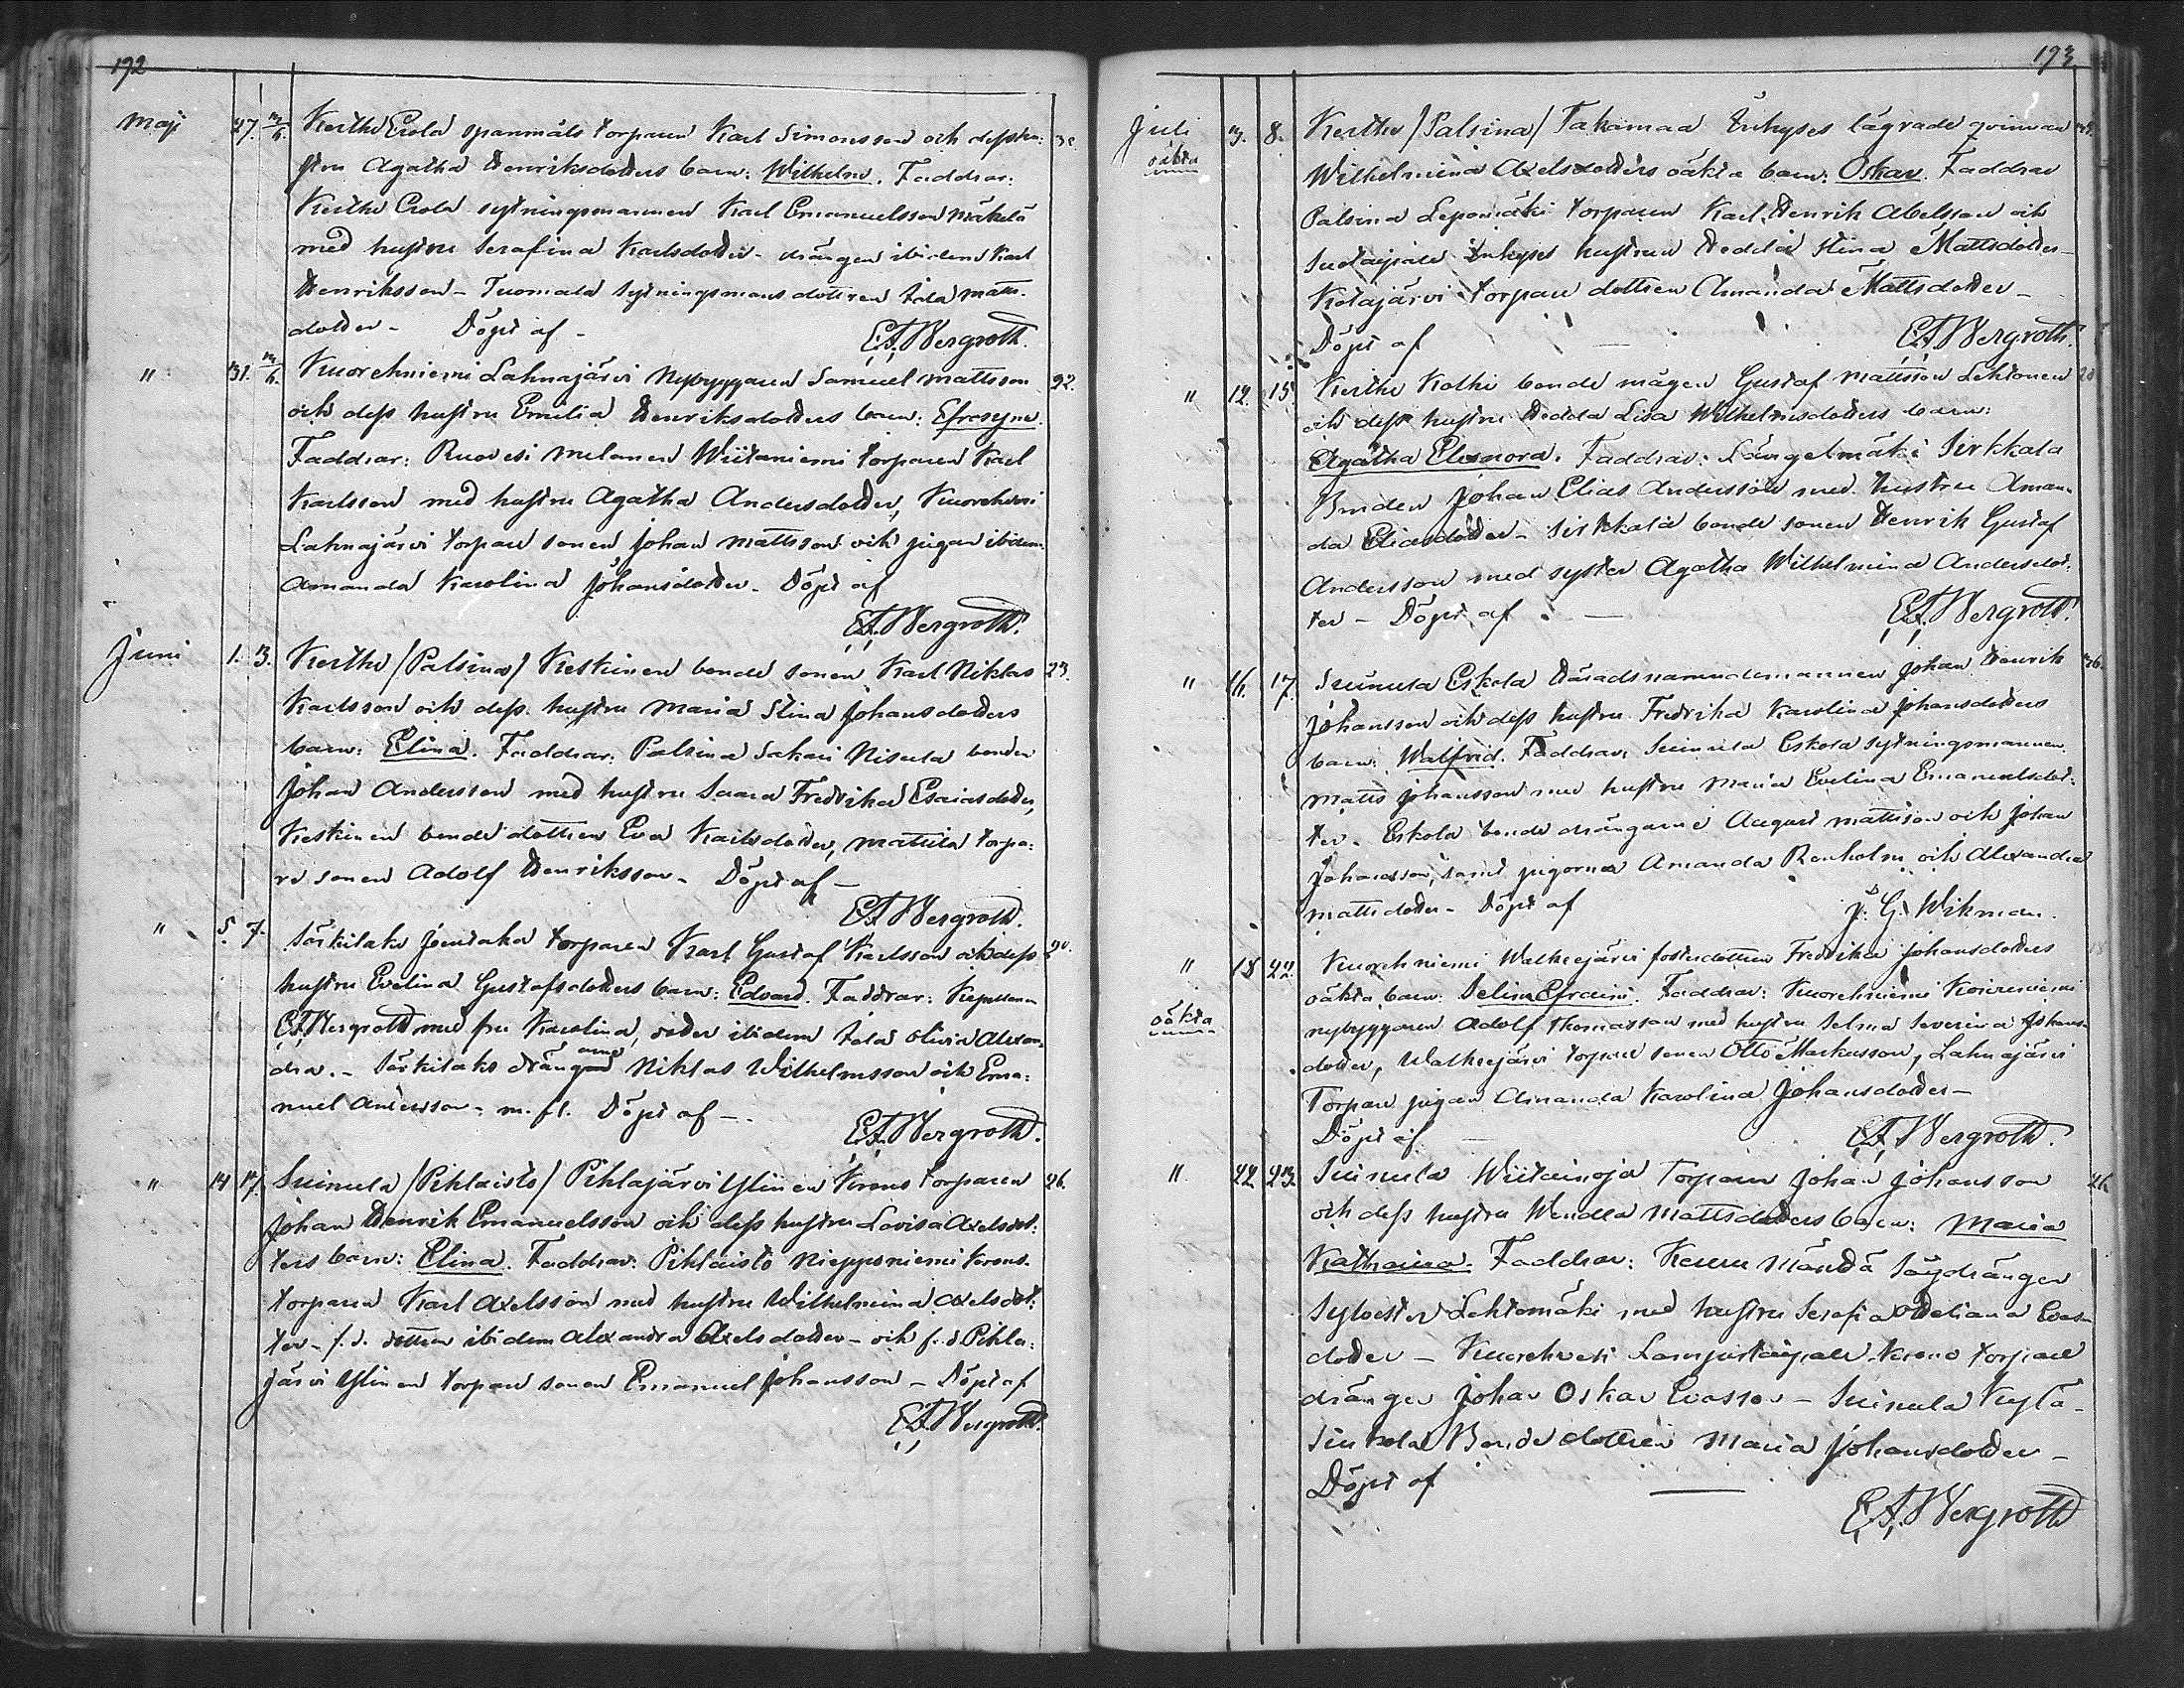 192
Maj 27. 3/6. Kertte Erola spanmåls torparen Karl Simonsson och dess hu- 32.
stru Agatha Henriksdotters barn: Wilhelm. Faddrar:
Kertte Erola sytningsmannen Karl Emanuelsson Mäkelä
med hustru Serafina Karlsdotter - drängen ibidem Karl
Henriksson - Tuomala Sytningsmans dottren Ida Matts-
dotter - Döpt af - E.A. Bergroth.
" 31. 3/6. Kuorehniemi Lahnajärvi Nybyggaren Samuel Mattsson 92.
och dess hustru Emilia Henriksdotters barn: Efrosyne.
Faddrar: Ruovesi Wiitaniemi torparen Karl
Karlsson med hustru Agatha Andersdotter, Kuorehvesi
Lahnajärvi torpare sonen Johan Mattsson och pigan ibidem
Amanda Karolina Johansdotter. Döpt af
E.A. Bergroth.
Juni 1. 3. Kertte /Palsina/ Keskinen bonde sonen Karl Niklas 23.
Karlsson och dess hustru Maria Stina Johansdotters
barn: Elina. Faddrar: Palsina Sakari Nisula bonden
Johan Andersson med hustru Saara Fredrika Esaiasdotter,
Keskinen bonde dottren Eva Karlsdotter, Mattila torpa-
re sonen Adolf Henriksson - Döpt af -
E.A. Bergroth.
" 5. 7. Särkilaks torparen Karl Gustaf Karlsson och dess 20.
hustru Evelina Gustafsdotters barn: Edvard. Faddrar: Kapellanen
E.A. Bergroth med fru Karolina, ibidem Ida Olivia Alexan-
dra. - Särkilaks drängarne Niklas Wilhelmsson och Ema-
nuel Andersson - m. fl. Döpt af -
E.A. Bergroth.
" 14 17. Suinula /Pihlaisto/ Pihlajärvi Ylinen Krono torparen 26.
Johan Henrik Emanuelsson och dess hustru Lovisa Axelsdot-
ters barn: Elina. Faddrar: Pihlaisto Nieppiniemi Krono-
torparen Karl Axelsson med hustru Wilhelmina Axelsdot-
ter - f.d. dottren ibidem Alexandra Axelsdotter - och f.d. Pihla-
järvi Ylinen torpare sonen Emanuel Johansson - Döpt af
E.A. Bergroth.
193
Juli 3. 8. Kertte /Palsina/ Takamaa Inhyses lägrade qvinnan
oäkta Wilhelmina Axelsdotters oäkta barn: Oskar. Faddrar
Palsina Lepomäki torparen Karl Henrik Abelsson och
Inhyses hustrun Hedda Stina Mattsdotter -
Kotajärvi torpare dottren Amanda Mattsdotter -
Döpt af E.A. Bergroth.
" 12. 15. Kertte Kolhi bonde mågen Gustaf Mattsson Lehtonen 20
och dess hustru Hedda Lisa Wilhelmsdotters barn:
Agatha Eleonora. Faddrar: Längelmäki Sirkkala
Bonden Johan Elias Andersson med hustru Aman-
da Eliasdotter - Sirkkala bonde sonen Henrik Gustaf
Andersson med syster Agatha Wilhelmina Andersdot-
ter - Döpt af E.A. Bergroth.
" 16. 17. Suinula Eskola Häradsnämndemannen Johan Henrik 36.
Johansson och dess hustru Fredrika Karolina Johansdotters
barn: Walfrid. Faddrar: Suinula Eskola sytningsmannen
Matts Johansson med hustru Maria Evelina Emanuelsdot-
ter. Eskola bonde drängarne August Mattsson och Johan
Johansson, samt pigorna Amanda Renholm och Alexandra
Mattsdotter - Döpt af J. G. Wikman.
" 18 22. Kuorehniemi Walkejärvi fosterdottren Fredrika Johansdotters 18
oäkta oäkta barn: Selim Efraim. Faddrar: Kuorehniemi Koivuniemi
nybyggaren Adolf Thomasson med hustru Selma Severina Johans-
dotter, Walkejärvi torpare sonen Otto Markusson, Lahnajärvi
Torpare pigan Amanda Karolina Johansdotter -
Döpt af E.A. Bergroth.
" 22 23. Suinula Wiitainoja Torparen Johan Johansson 26
och dess hustru Wendla Mattsdotters barn: Maria
Katharina. Faddrar: Keuru Mändä Sågdrängen
Sylvester Lehtomäki med hustru Serafia Evas-
dotter - Kuorehvesi krono torpare
drängen Johan Oskar Evasson - Suinula Kylä-
Sinkola Bonde dottren Maria Johansdotter -
Döpt af
E.A. Bergroth